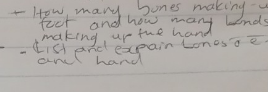 - How many bones making u
foot and how many bonds
making up the hand
- List and explain bones o e
and hand